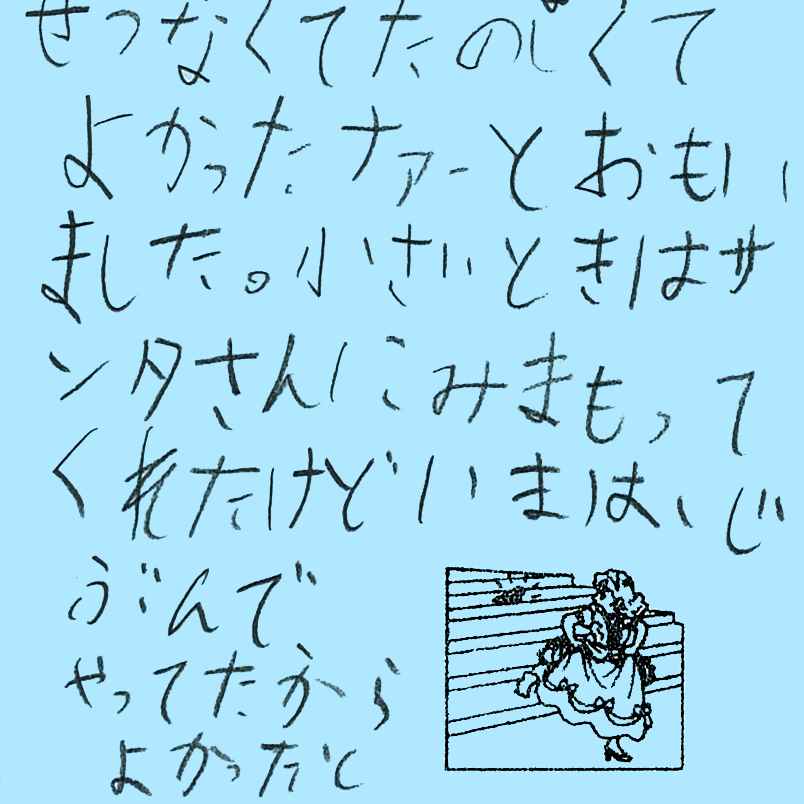 せつなくてたのしくて
よかったナァーとおもい
ました。小さいときはサ
ンタさんにみまもって
くれたけどいまは、じ
ぶんで
やってたから
よかったと